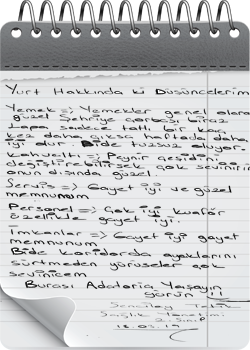 Yurt Hakkında ki Düşüncelerim
Yemek => Yemekler genel olarak
güzel Şehriye çorbası biraz
Lapa sadece tatlı bir kaç
kez daha çıksa haftada daha
iyi olur. Bide tuzsuz oluyor.
kahvaltı => Peynir çeşidini
değiştirebilirsek çok sevinirim
onun dışında güzel.
Servis => Gayet iyi ve güzel
memnunum
Personel => Çok iyi kuaför
özellikle iyi.
İmkanlar => Gayet iyi gayet
memnunum
Bide koridorda ayaklarını
sürtmeden yürüseler çok
sevinicem
Burası Adaloria Yaşayın
görün !!!
Sağlık Yönetimi
2. Sınıf
18.03.19